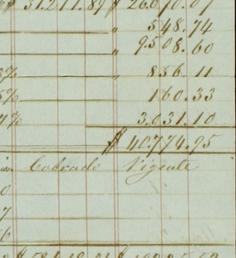 $ 31.211.89 $ 26.070.07
" 548.74
" 9508.60
3% " 856.11
5% " 160.33
4% " 3.031.10
$ 40.774.95
Cobrado Vigente
0
7
6